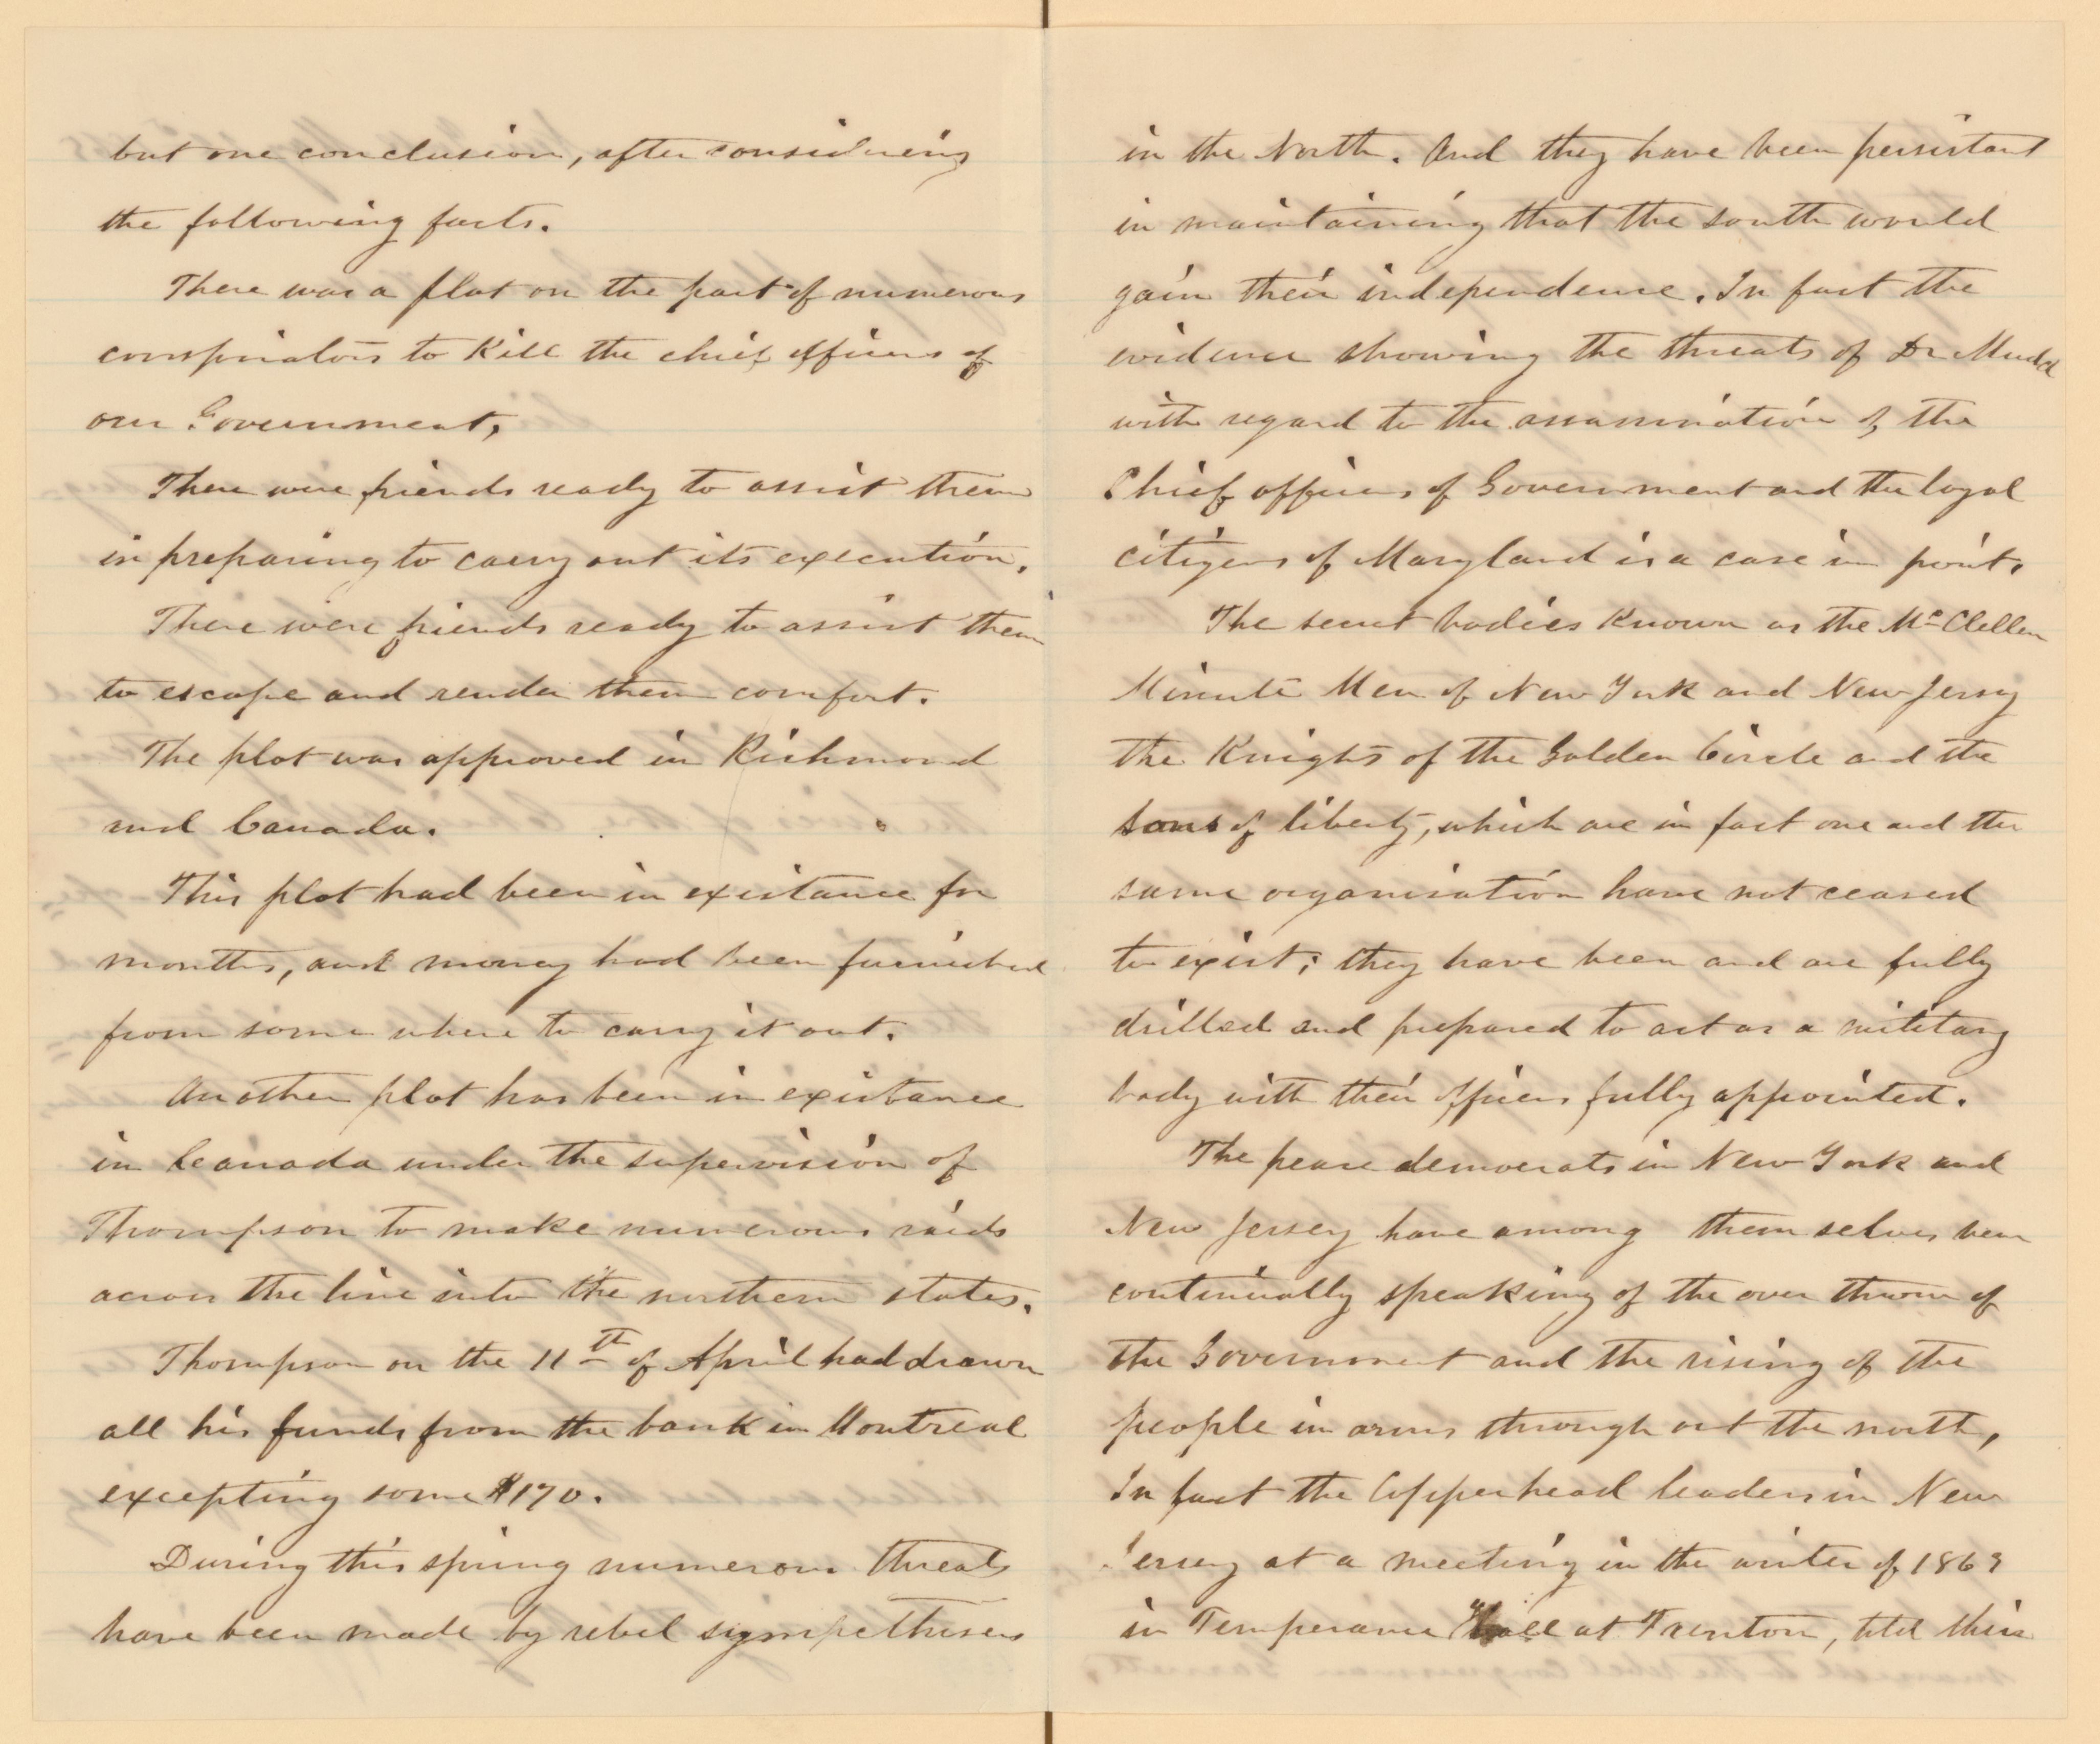 but one conclusion, after considering
the following facts.
There was a plot on the part of numerous
conspirators to Kill the chief officers of
our Government,
There were friends ready to assist them
in preparing to carry out its execution.
There were friends ready to assist them
to escape and render them comfort.
The plot was approved in Richmond
and Canada.
This plot had been in existance for
months, and money had been furnished
from some where to carry it out.
Another plot has been in existance
in Canada under the supervision of
Thompson to make numerous raids
across the line into the northern states.
Thompson on the 11th of April had drawn
all his funds from the bank in Montreal
excepting some $170.
During this spring numerous threats
have been made by rebel sympethisers
in the North. And they have been persistant
in maintaining that the south would
gain their independence. In fact the
evidence showing the threats of Dr Mudd
with regard to the assassination of the
Chief officers of Government and the loyal
citizens of Maryland is a case in point.
The secret bodies Known as the McClellen
Minute Men of New York and New Jersey
the Knights of the Golden Circle and the
sons of liberty, which are in fact one and the
same organisation have not ceased
to exist; they have been and are fully
drilled and prepared to act as a military
body with their officers fully appointed.
The peace democrats in New York and
New Jersey have among them selves been
continually speaking of the over throw of
the Government and the rising of the
people in arms through out the north,
In fact the Copperhead leaders in New
Jersey at a meeting in the winter of 1863
in Temperance Hall at Trenton, told their